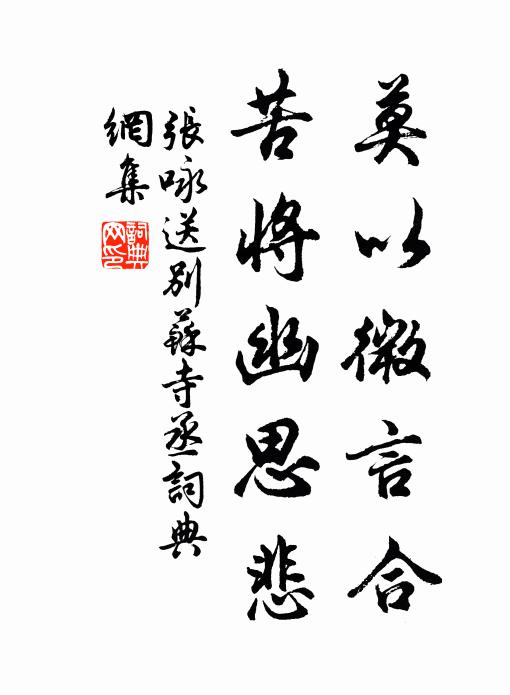 莫以微言合
苦將幽思悲
張咏送別蘇寺丞詞典
網集
詞典
网印